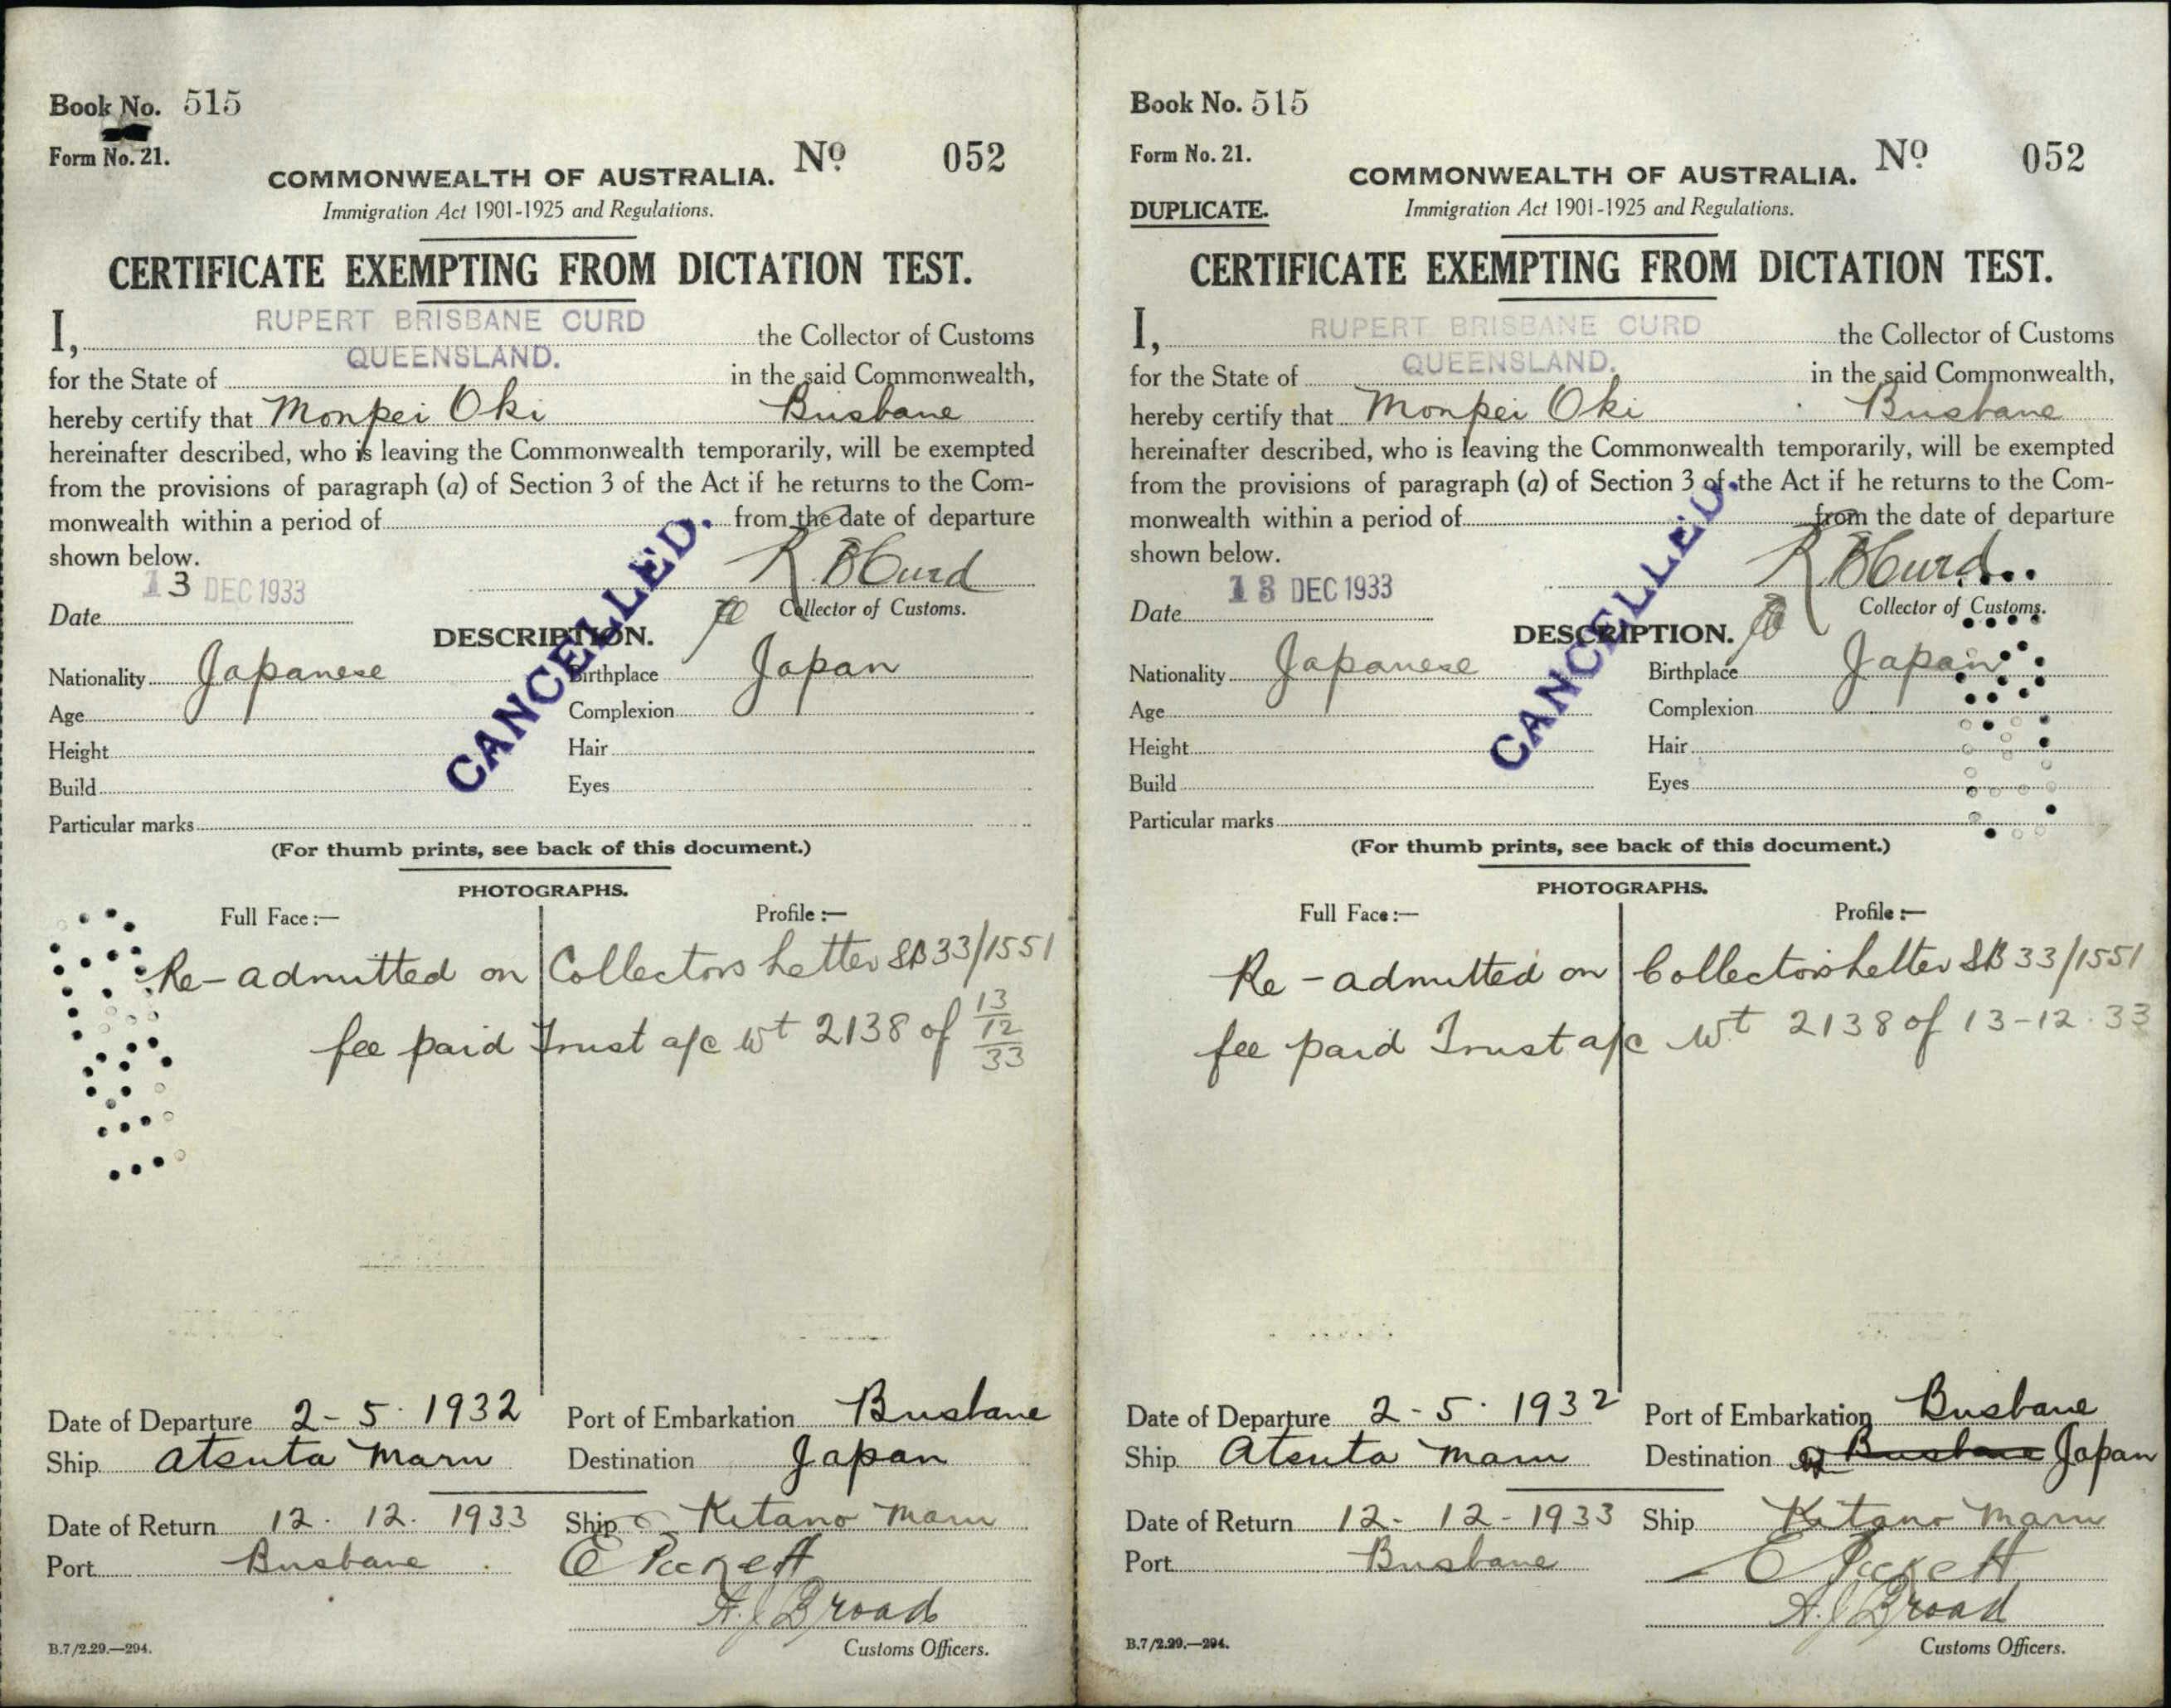 Book No. 515
Form No. 21.
COMMONWEALTH OF AUSTRALIA. No. 052
Immigration Act 1901-1925 and Regulations.
CERTIFICATE EXEMPTING FROM DICTATION TEST.
I, RUPERT BRISBANE CURD the Collector of Customs
for the State of QUEENSLAND. in the said Commonwealth,
hereby certify that Monpei Oki Brisbane
hereinafter described, who is leaving the Commonwealth temporarily, will be exempted
from the provisions of paragraph (a) of Section 3 of the Act if he returns to the Com-
monwealth within a period of from the date of departure
shown below.
R B Curd
13 DEC 1933
Date Collector of Customs.
CANCELLED.
DESCRIPTION.
Nationality Japanese Birthplace Japan
Age Complexion
Height Hair
Build Eyes
Particular marks
(For thumb prints, see back of this document.)
PHOTOGRAPHS.
Full Face :— Profile :—
Re-admitted on Collectors Letter SB33/1551
fee paid Trust a/c Wt 2138 of 13/12/33
Date of Departure 2-5-1932 Port of Embarkation Brisbane
Ship Atsuta Maru Destination Japan
Date of Return 12.12.1933 Ship Kitano Maru
Port Brisbane
A.J Broad
B.7/2.29.—294. Customs Officers.
Book No. 515
Form No. 21.
COMMONWEALTH OF AUSTRALIA. No. 052
DUPLICATE. Immigration Act 1901-1925 and Regulations.
CERTIFICATE EXEMPTING FROM DICTATION TEST.
I, RUPERT BRISBANE CURD the Collector of Customs
for the State of QUEENSLAND. in the said Commonwealth,
hereby certify that Monpei Oki Brisbane
hereinafter described, who is leaving the Commonwealth temporarily, will be exempted
from the provisions of paragraph (a) of Section 3 of the Act if he returns to the Com-
monwealth within a period of from the date of departure
shown below.
R B Curd
13 DEC 1933
Date Collector of Customs.
CANCELLED.
DESCRIPTION.
Nationality Japanese Birthplace Japan
Age Complexion
Height Hair
Build Eyes
Particular marks
(For thumb prints, see back of this document.)
PHOTOGRAPHS.
Full Face :— Profile :—
Re-admitted on Collectors Letter SB 33/1551
fee paid Trust a/c Wt 2138 of 13-12-33
Date of Departure 2-5-1932 Port of Embarkation Brisbane
Ship Atsuta Maru Destination Brisbane Japan
Date of Return 12-12-1933 Ship Kitano Maru
Port Brisbane
A.J Broad
B.7/2.29.—294. Customs Officers.